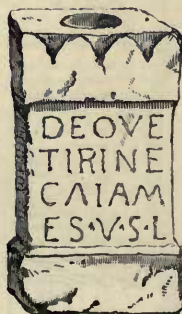 DEOVE
TIRINE
CAIAM
ES·V·S·L